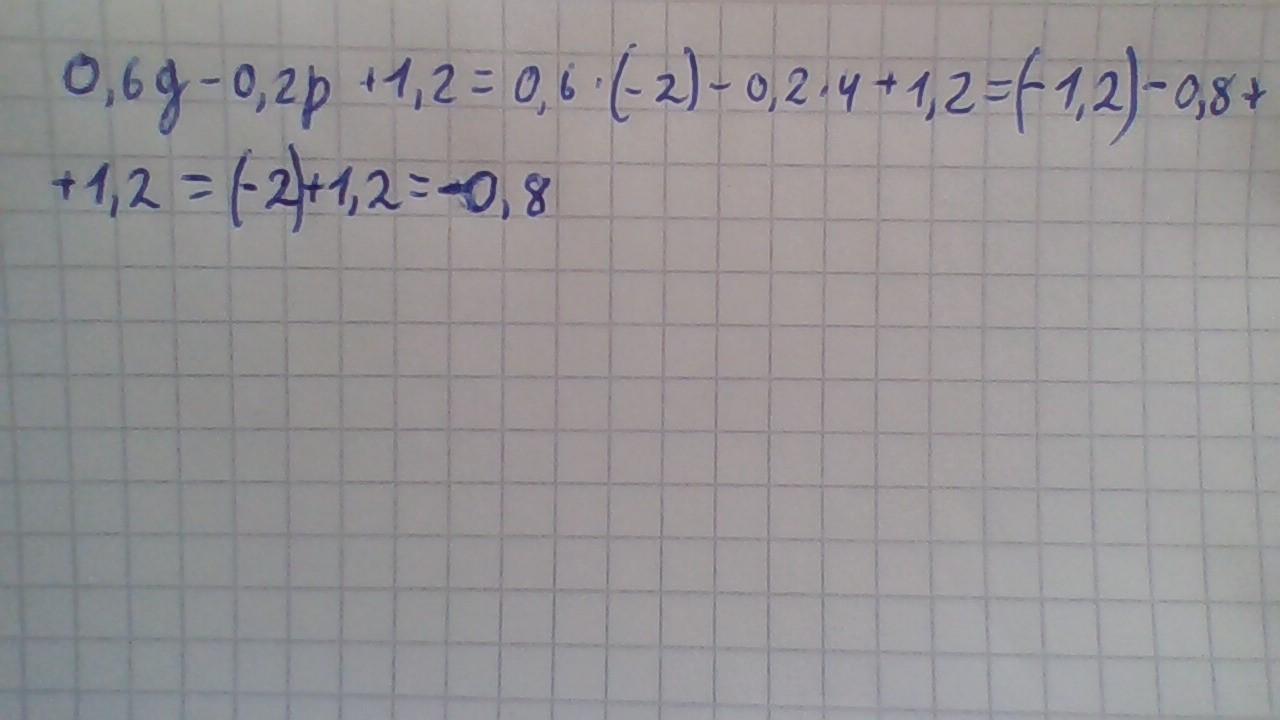 0,6g - 0,2p + 1,2 = 0,6 · (-2) - 0,2 · 4 + 1,2 = (-1,2) - 0,8 +
+ 1,2 = (-2) + 1,2 = -0,8